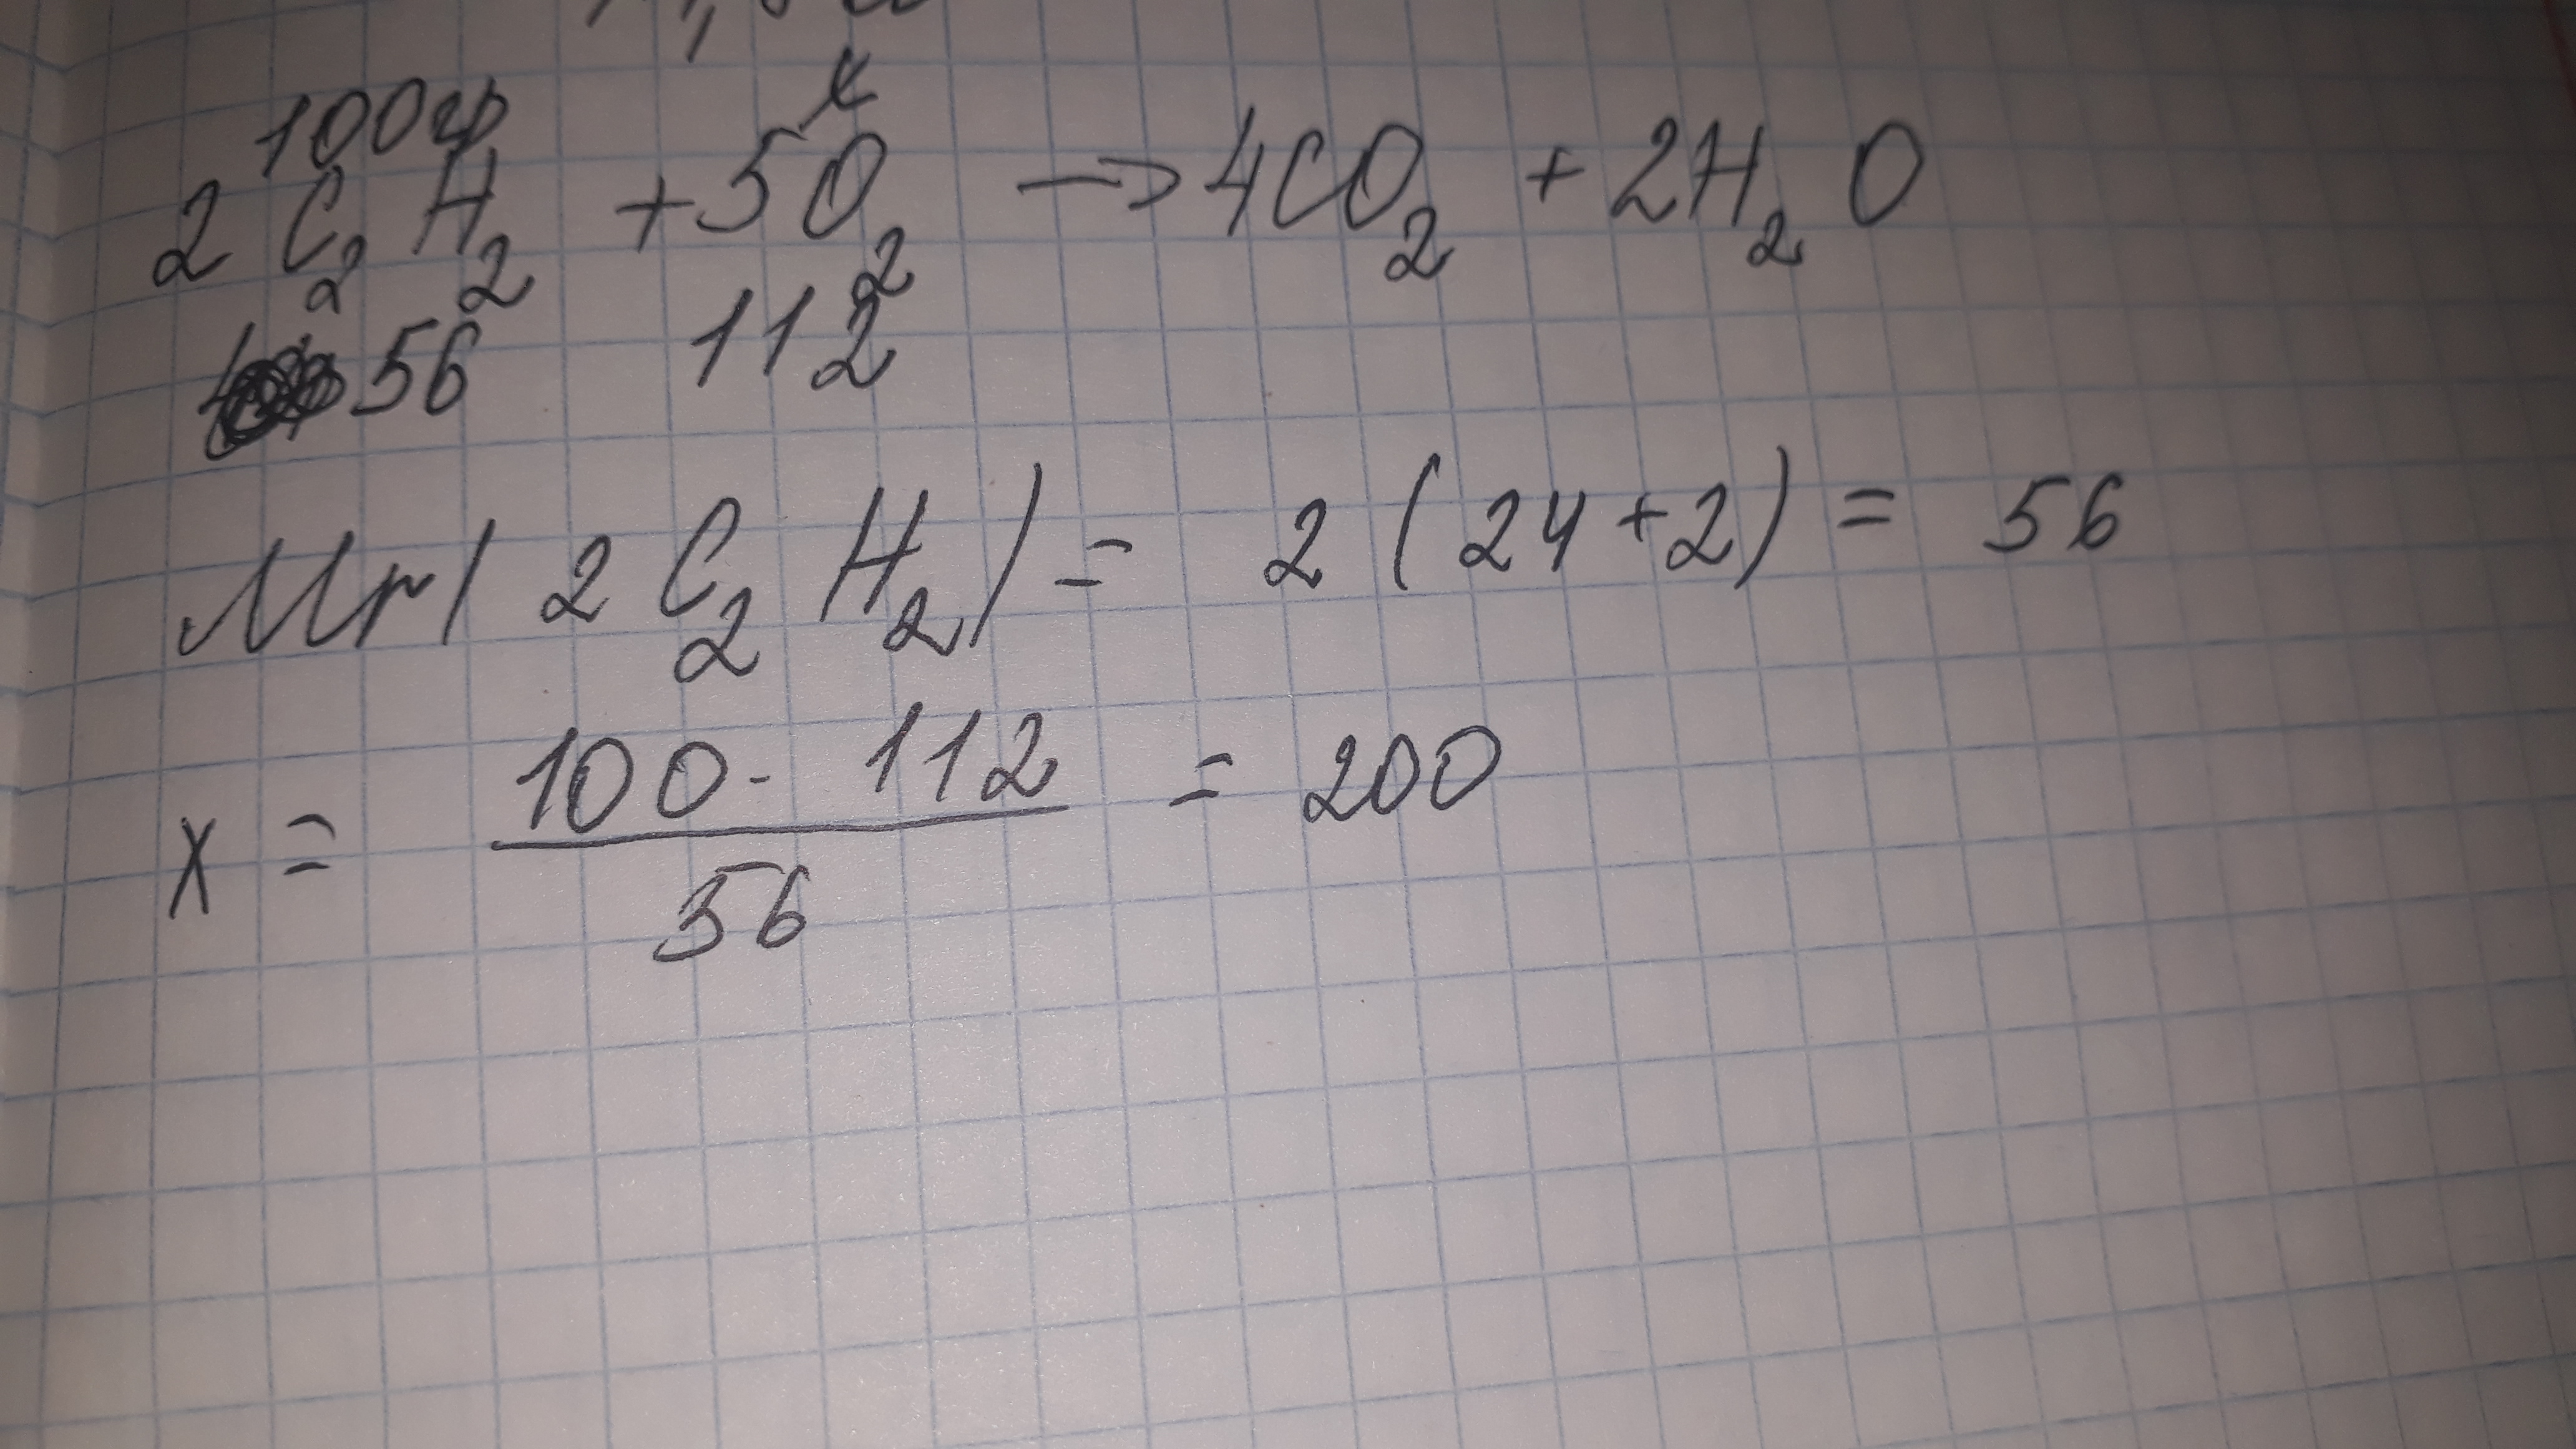 100гр x
2C₂H₂ + 5O₂ → 4CO₂ + 2H₂O
56 112
Mr(2C₂H₂) = 2(24+2) = 56
x = 100·112/56 = 200